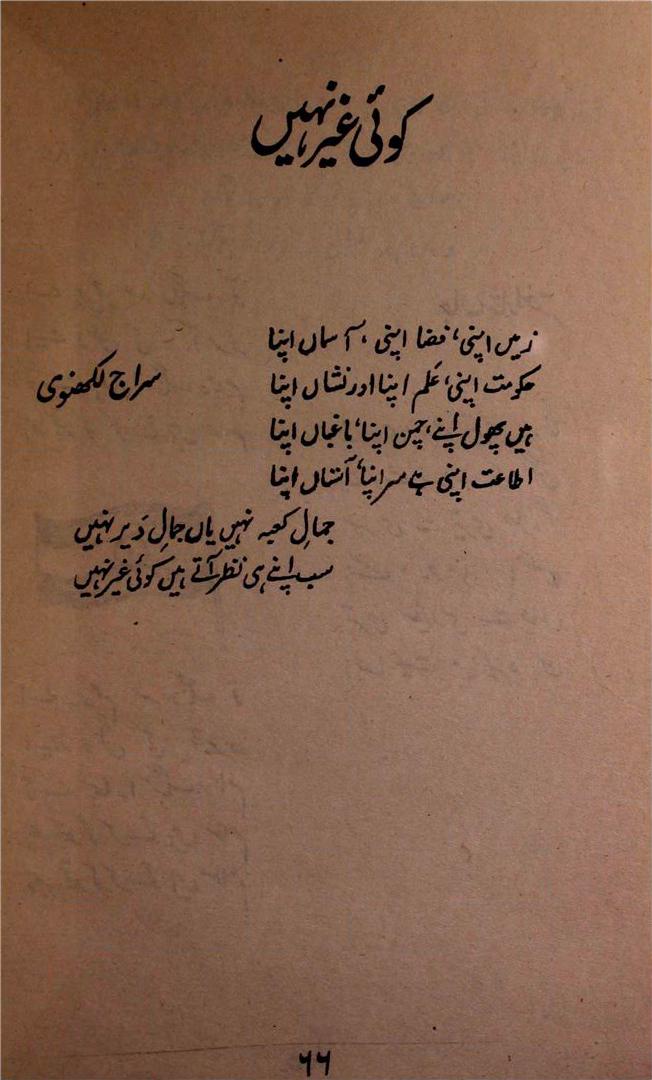 کوئی غیر نہیں
زمیں اپنی، فضا اپنی، آسماں اپنا
حکومت اپنی، عَلم اپنا اور نشاں اپنا
سراج لکھنوی
ہیں پھول اپنے، چمن اپنا، باغباں اپنا
اطاعت اپنی ہے سر اپنا، آستاں اپنا
جمالِ کعبہ نہیں یاں جمالِ دَیر نہیں
سب اپنے ہی نظر آتے ہیں کوئی غیر نہیں
۶۶